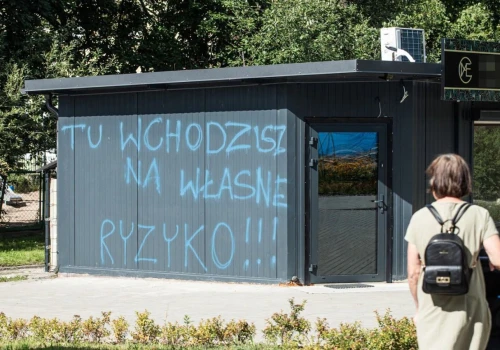 TU WCHODZISZ
NA WŁASNE
RYZYKO!!!